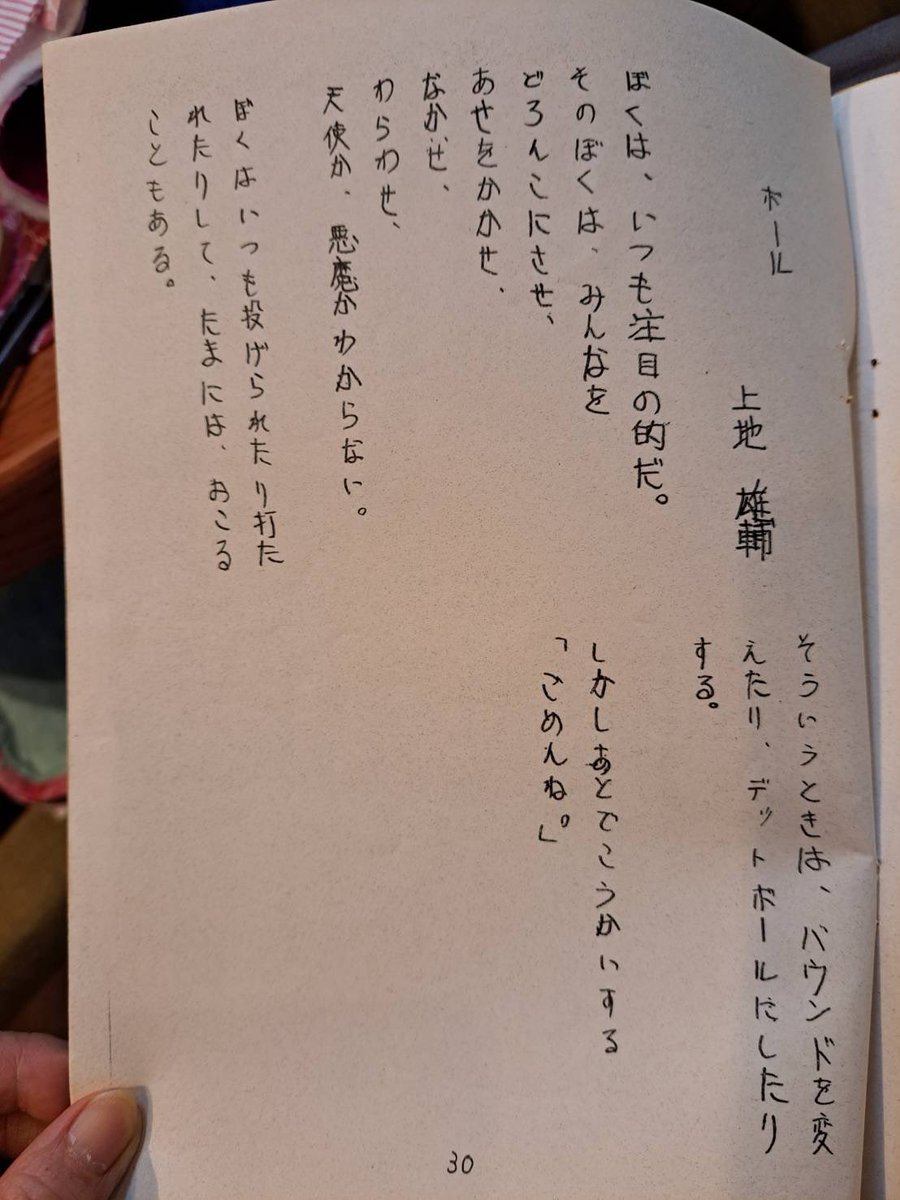 ボール
上地 雄輔
ぼくは、いつも注目の的だ。
そのぼくは、みんなを
どろんこにさせ、
あせをかかせ、
なかせ、
わらわせ、
天使か、悪魔かわからない。
ぼくはいつも投げられたり打た
れたりして、たまには、おこる
こともある。
そういうときは、バウンドを変
えたり、デットボールにしたり
する。
しかしあとでこうかいする
「ごめんね。」
30